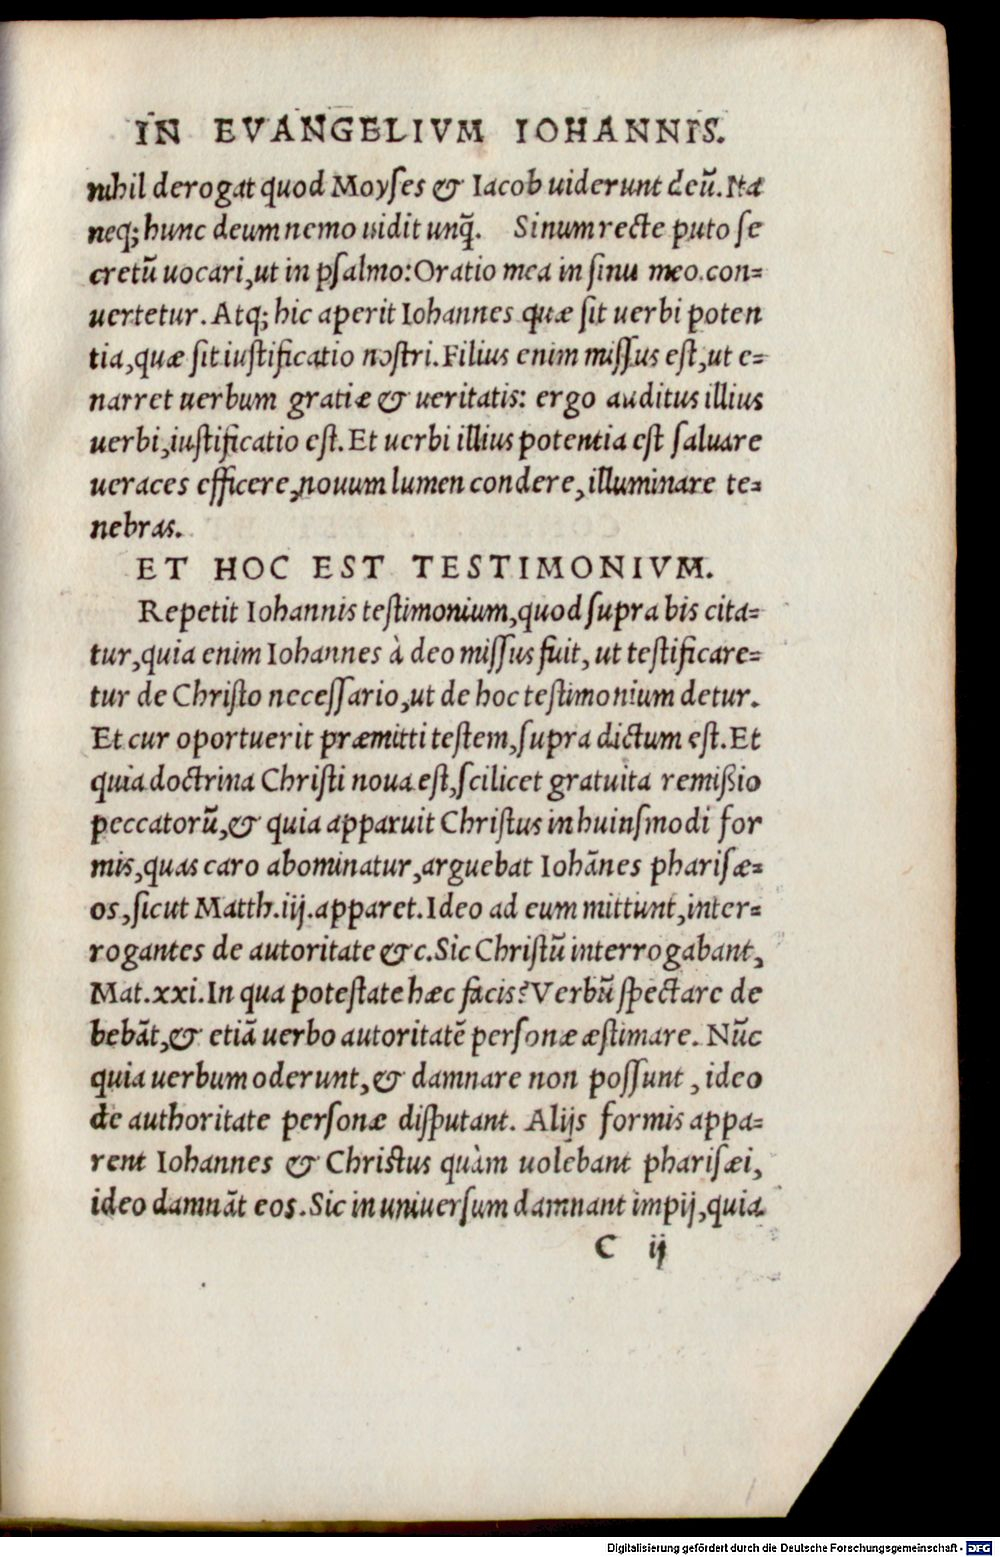 IN EVANGELIVM IOHANNIS.
nihil derogat quod Moyſes & Iacob uiderunt deũ. Nã
neq; hunc deum nemo uidit unq̃. Sinum recte puto ſe
cretũ uocari, ut in pſalmo: Oratio mea in ſinu meo con=
uertetur. Atq; hic aperit Iohannes quæ ſit uerbi poten
tia, quæ ſit iuſtificatio noſtri. Filius enim miſſus eſt, ut e=
narret uerbum gratiæ & ueritatis: ergo auditus illius
uerbi, iuſtificatio eſt. Et uerbi illius potentia eſt ſaluare
ueraces efficere, nouum lumen condere, illuminare te=
nebras.
ET HOC EST TESTIMONIVM.
Repetit Iohannis teſtimonium, quod ſupra bis cita=
tur, quia enim Iohannes à deo miſſus fuit, ut teſtificare=
tur de Chriſto neceſſario, ut de hoc teſtimonium detur.
Et cur oportuerit præmitti teſtem, ſupra dictum eſt. Et
quia doctrina Chriſti noua eſt, ſcilicet gratuita remißio
peccatorũ, & quia apparuit Chriſtus in huinſmodi for
mis, quas caro abominatur, arguebat Iohãnes phariſæ=
os, ſicut Matth. iij. apparet. Ideo ad eum mittunt, inter=
rogantes de autoritate &c. Sic Chriſtũ interrogabant,
Mat. xxi. In qua poteſtate hæc facis? Verbũ ſpectare de
bebãt, & etiã uerbo autoritatẽ perſonæ æſtimare. Nũc
quia uerbum oderunt, & damnare non poſſunt, ideo
de authoritate perſonæ diſputant. Alijs formis appa=
rent Iohannes & Chriſtus quàm uolebant phariſæi,
ideo damnãt eos. Sic in uniuerſum damnant impij, quia
C ij
Digitalisierung gefördert durch die Deutsche Forschungsgemeinschaft - DFG